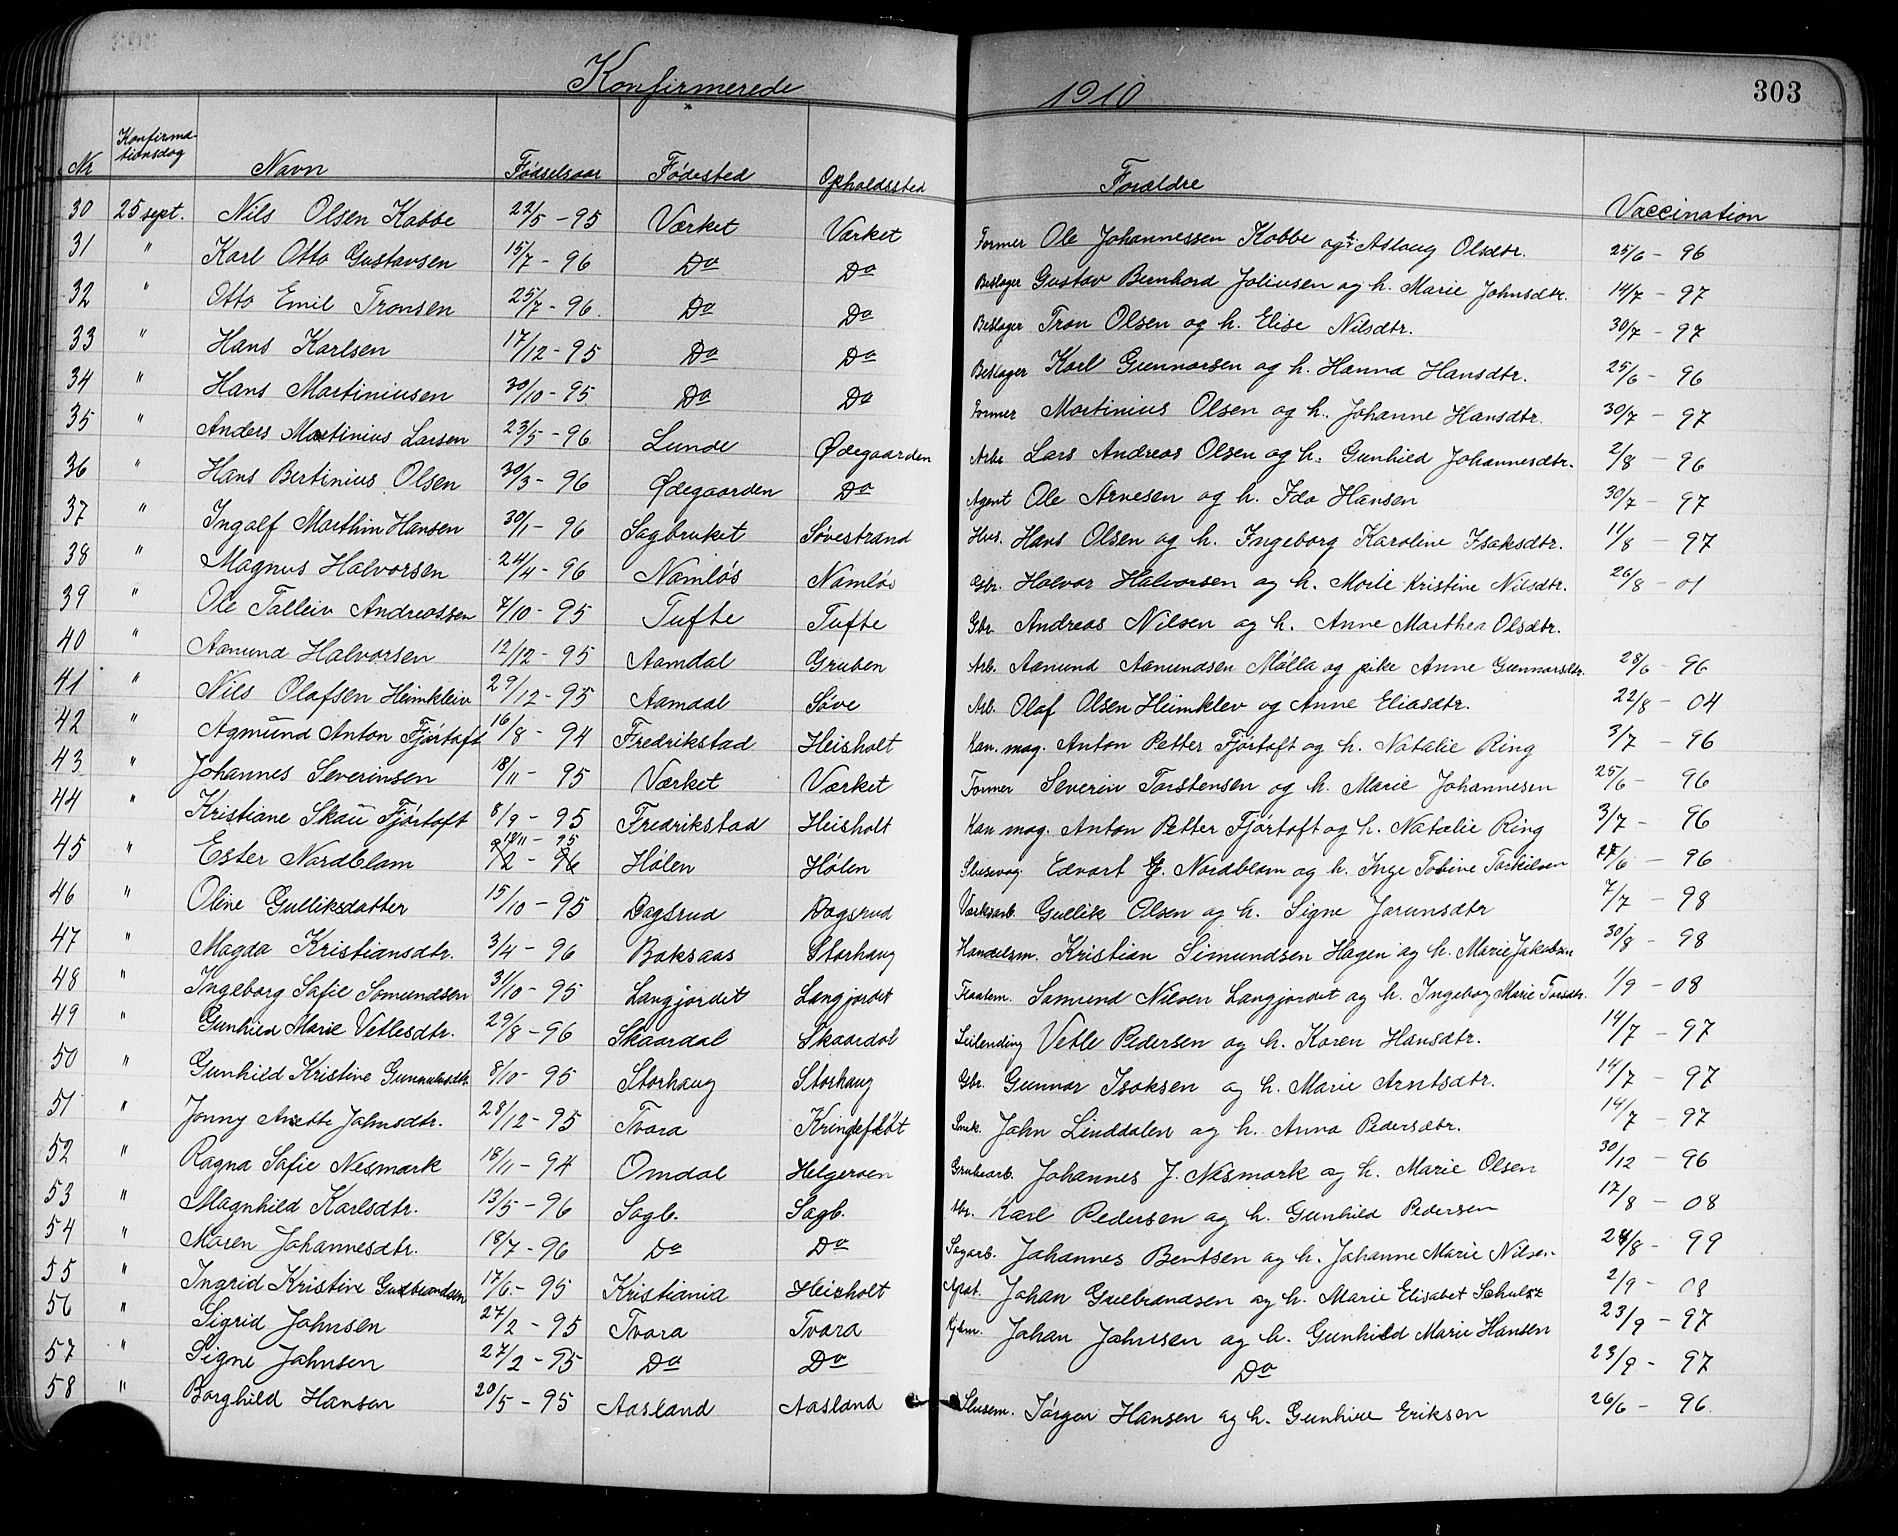 Konfirmerede 1910 303
Nr Konfirmationsdag Navn Fødselsaar Fødested Opholdssted Forældre Vaccination
30 25 sept. Nils Olsen Kabbe 22/5 - 95 Værket Værket Former Ole Johannessen Kobbe og h. Aslaug Olsdtr. 25/6 - 96
31 " Karl Otto Gustavsen 15/7 - 96 Do Do Beslager Gustav Bernhard Joliusen og h. Marie Johnsdtr. 14/7 - 97
32 " Otto Emil Tronsen 25/7 - 96. Do Do Beslager Tron Olsen og h. Elise Nilsdtr. 30/7 - 97
33 " Hans Karlsen 17/12 - 95 Do Do Beslager Karl Gunnarsen og h. Hanna Hansdtr. 25/6 - 96
34 " Hans Martiniusen 30/10 - 95 Do Do Former Martinius Olsen og h. Johanne Hansdtr. 30/7 - 97
35 " Anders Martinius Larsen 23/5 - 96 Lunde Ødegaarden Arb. Lars Andreas Olsen og h. Gunhild Johannesdtr. 2/8 - 96
36 " Hans Bertinius Olsen 30/3 - 96 Ødegaarden Do Agent Ole Arnesen og h. Ida Hansen 30/7 - 97
37 " Ingolf Marthin Hansen 30/1 - 96 Sagbruket Søvestrand Hus. Hans Olsen og h. Ingeborg Karoline Isaksdtr. 11/8 - 97
38 " Magnus Halvorsen 24/4 - 96 Namløs Namløs Gbr. Halvor Halvorsen og h. Marie Kristine Nilsdtr. 26/8 - 01
39 " Ole Talleiv Andreassen 7/10 - 95 Tufte Tufte Gbr. Andreas Nilsen og h. Anne Marthea Olsdtr.
40 " Aamund Halvorsen 12/12 - 95 Aamdal Gruben Arb. Aamund Aamundsen Mølla og pike Anne Gunnarsdtr. 28/6 - 96
41 " Nils Olafsen Heimkleiv 29/12 - 95 Aamdal Søve Arb. Olaf Olsen Heimklev og Anne Eliasdtr. 22/8 - 04
42 " Agmund Anton Fjørtoft 16/8 - 94 Fredrikstad Heisholt Kan. mag. Anton Petter Fjørtoft og h. Natalie Ring 3/7 - 96
43 " Johannes Severinsen 18/11 - 95 Værket Værket Former Severin Torstensen og h. Marie Johannesen 25/6 - 96
44 " Kristiane Skau Fjørtoft 8/9 - 95 Fredrikstad Heisholt Kan mag. Anton Petter Fjørtoft og h. Natalie Ring 3/7 - 96
45 " Ester Nordblam Hølen Hølen Slusevog Edvart G. Nordblom og h. Inge Tobine Torkilsen 27/6 - 96
46 " Oline Gulliksdatter 15/10 - 95 Dagsrud Dagsrud Værksarb. Gullik Olsen og h. Signe Jørunsdtr 7/7 - 98
47 " Magda Kristiansdtr. 3/4 - 96 Baksaas Storhaug Handelsm. Kristian Simundsen Hagen og h. Marie Jakobsen 30/8 - 98
48 " Ingeborg Safie Somundsen 31/10 - 95 Langjordet Langjordet Samund Nilsen Langjordet og h. Ingeborg Marie Torsdtr. 1/9 - 08
49 " Gunhild Marie Vetlesdtr. 29/8 - 96 Skaardal Skaardal Leilending Vetle Pedersen og h. Karen Hansdtr. 14/7 - 97
50 " Gunhild Kristine Gunnarsdtr. 8/10 - 95 Storhaug Storhaug Gbr. Gunnar Isaksen og h. Marie Arntsdtr. 14/7 - 97
51 " Jonny Anette Johnsdtr. 28/12 - 95 Tvara Kringleflot Smek. John Linddalen og h. Anna Pedersdtr. 14/7 - 97
52 " Ragna Safie Nesmark 18/11 - 94 Omdal Helgeroen Grubearb. Johannes J. Nesmark og h. Marie Olsen 30/12 - 96
53 " Magnhild Karlsdtr. 13/5 - 96 Sagb. Sagb. Karl Pedersen og h. Gunhild Pedersen 17/8 - 08
54 " Maren Johannesdtr. 18/7 - 96 Do Do Sagarb. Johannes Bentsen og h. Johanne Marie Nilsen 28/8 - 99
55 " Ingrid Kristine Gulbrandsen 17/6 - 95 Kristiania Heisholt Johan Gulbrandsen og h. Marie Elisabet Schulsz 2/9 - 08
56 " Sigrid Johnsen 27/2 - 95 Tvara Tvara Johan Johnsen og h. Gunhild Marie Hansen 23/9 - 97
57 " Signe Johnsen 27/2 - 95 Do Do Do 23/9 - 97
58 " Borghild Hansen 20/5 - 95 Aasland Aasland Slusem. Jørgen Hansen og h. Gunhild Eriksen 26/6 - 96.